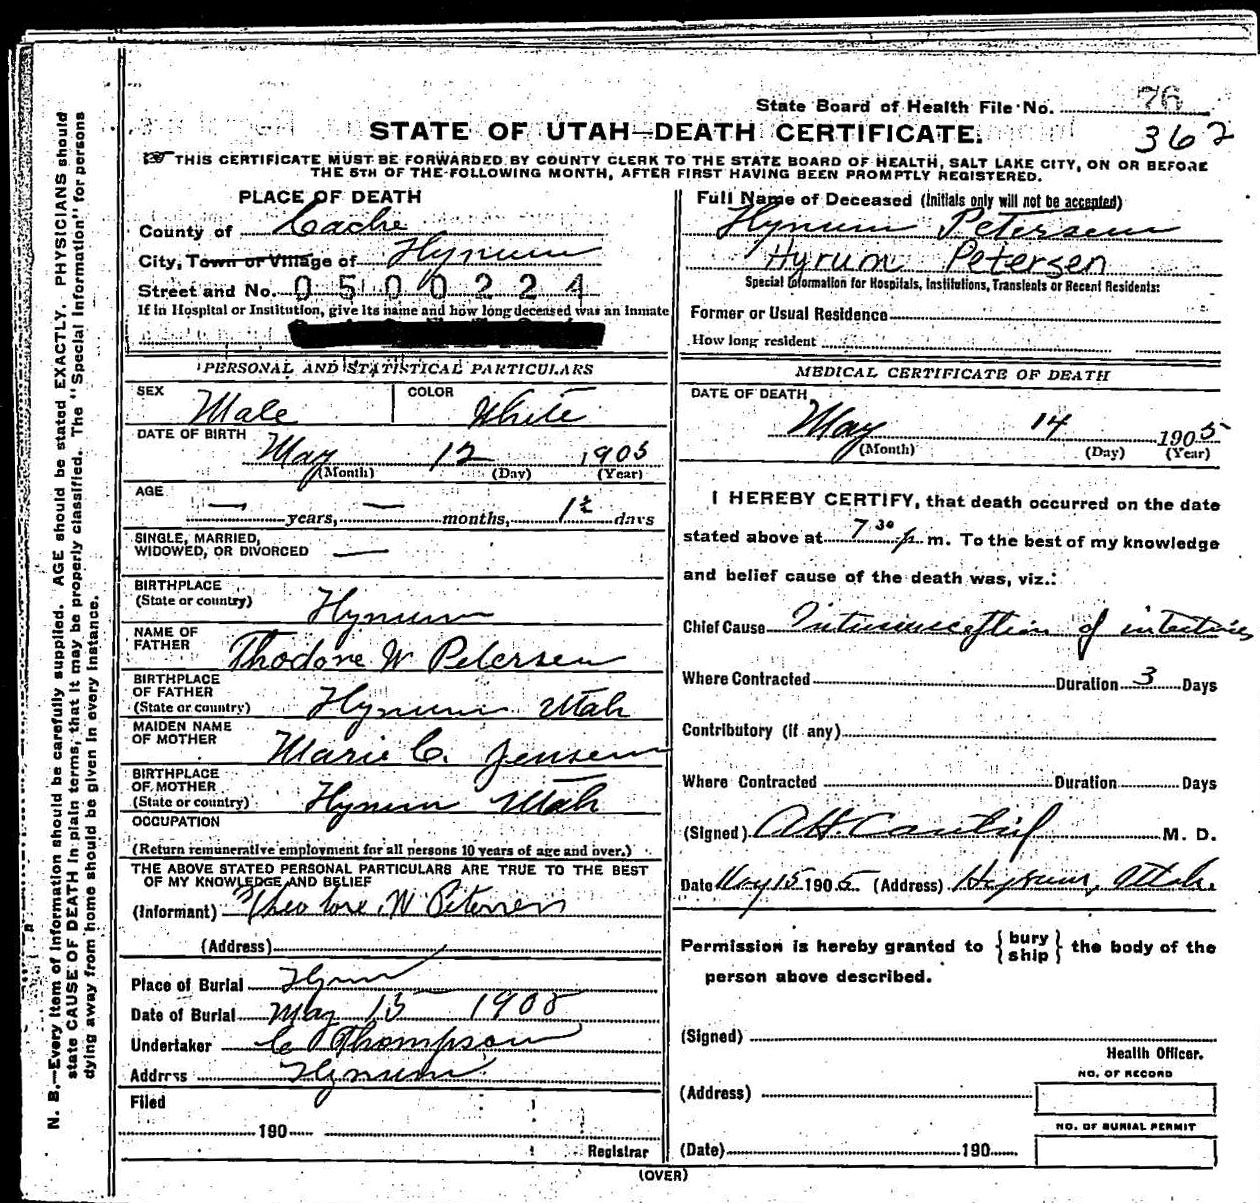 State Board of Health File No. 76
STATE OF UTAH—DEATH CERTIFICATE.
362
THIS CERTIFICATE MUST BE FORWARDED BY COUNTY CLERK TO THE STATE BOARD OF HEALTH, SALT LAKE CITY, ON OR BEFORE
THE 5TH OF THE FOLLOWING MONTH, AFTER FIRST HAVING BEEN PROMPTLY REGISTERED.
PLACE OF DEATH
County of Cache
City, Town or Village of Hyrum
Street and No. 0500224
If in Hospital or Institution, give its name and how long deceased was an inmate
PERSONAL AND STATISTICAL PARTICULARS
SEX Male COLOR White
DATE OF BIRTH May 12 1905
(Month) (Day) (Year)
AGE
— years, — months, 1½ days
SINGLE, MARRIED,
WIDOWED, OR DIVORCED —
BIRTHPLACE
(State or country) Hyrum
NAME OF
FATHER Thodore W Petersen
BIRTHPLACE
OF FATHER
(State or country) Hyrum Utah
MAIDEN NAME
OF MOTHER Marie C. Jensen
BIRTHPLACE
OF MOTHER
(State or country) Hyrum Utah
OCCUPATION
(Return remunerative employment for all persons 10 years of age and over.)
THE ABOVE STATED PERSONAL PARTICULARS ARE TRUE TO THE BEST
OF MY KNOWLEDGE AND BELIEF
(Informant) Theodore W Petersen
(Address)
Place of Burial Hyrum
Date of Burial May 15 1905
Undertaker C Thompson
Address Hyrum
Filed
190
Registrar
Full Name of Deceased (Initials only will not be accepted)
Hyrum Petersen
Hyrum Petersen
Special Information for Hospitals, Institutions, Transients or Recent Residents:
Former or Usual Residence
How long resident
MEDICAL CERTIFICATE OF DEATH
DATE OF DEATH
May 14 1905
(Month) (Day) (Year)
I HEREBY CERTIFY, that death occurred on the date
stated above at 7 30 p. m. To the best of my knowledge
and belief cause of the death was, viz.:
Chief Cause Intussusception of intestines
Where Contracted Duration 3 Days
Contributory (if any)
Where Contracted Duration Days
(Signed) M. D.
Date May 15 1905 (Address) Hyrum, Utah.
Permission is hereby granted to { bury ship } the body of the
person above described.
(Signed)
Health Officer.
NO. OF RECORD
(Address)
NO. OF BURIAL PERMIT
(Date) 190
(OVER)
N. B.—Every item of information should be carefully supplied. AGE should be stated EXACTLY. PHYSICIANS should
state CAUSE OF DEATH in plain terms, that it may be properly classified. The "Special Information" for persons
dying away from home should be given in every instance.